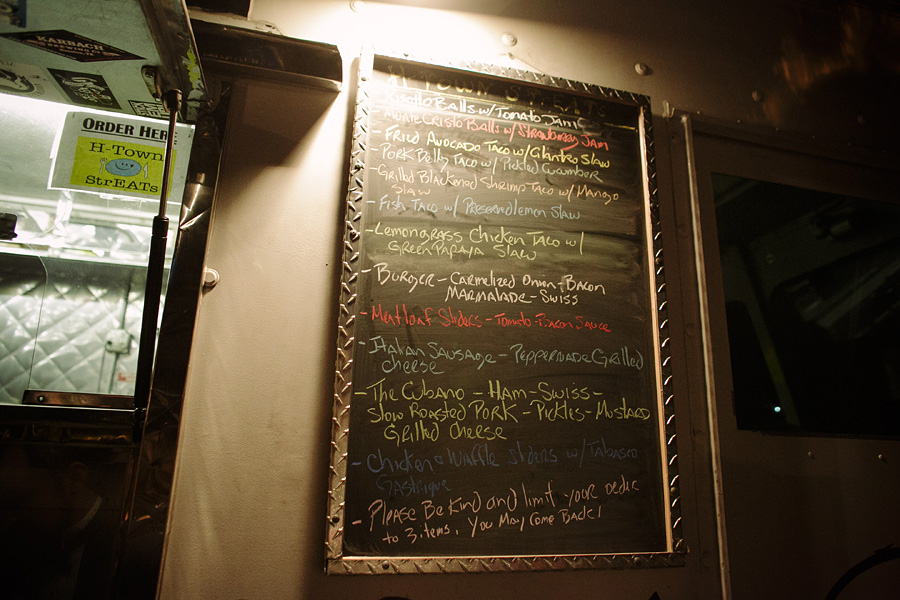 KARBACH
BREWING CO.
ORDER HERE
H-Town
StrEATs
H-TOWN STREATS
Risotto Balls w/ Tomato Jam
- Monte Cristo Balls w/ Strawberry Jam
- Fried Avocado Taco w/ Cilantro Slaw
- Pork Belly Taco w/ Pickled Cucumber
- Grilled Blackened Shrimp Taco w/ Mango
Slaw
- Fish Taco w/ Preserved lemon Slaw
- Lemongrass Chicken Taco w/
Green Papaya Slaw
- Burger - Carmelized Onion - Bacon
Marmalade - Swiss
- Meatloaf Sliders - Tomato-Bacon Sauce
- Italian Sausage - Peppernade Grilled
cheese
- The Cubano - Ham - Swiss -
Slow Roasted Pork - Pickles - Mustard
Grilled Cheese
- Chicken & Waffle sliders w/ Tabasco
Gastrique
- Please Be Kind and limit your order
to 3 items, You May Come Back!